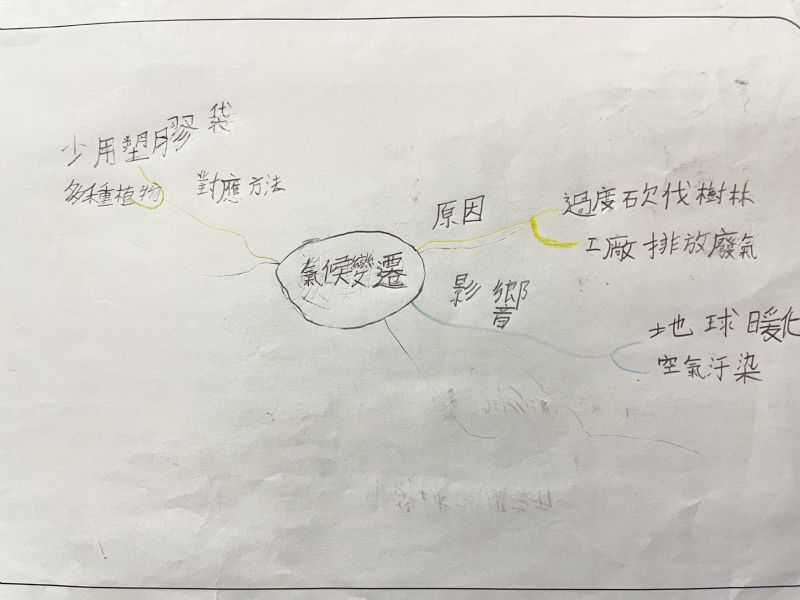 少用塑膠袋
多種植物
對應方法
氣候變遷
原因
過度砍伐樹林
工廠排放廢氣
影響
地球暖化
空氣汙染